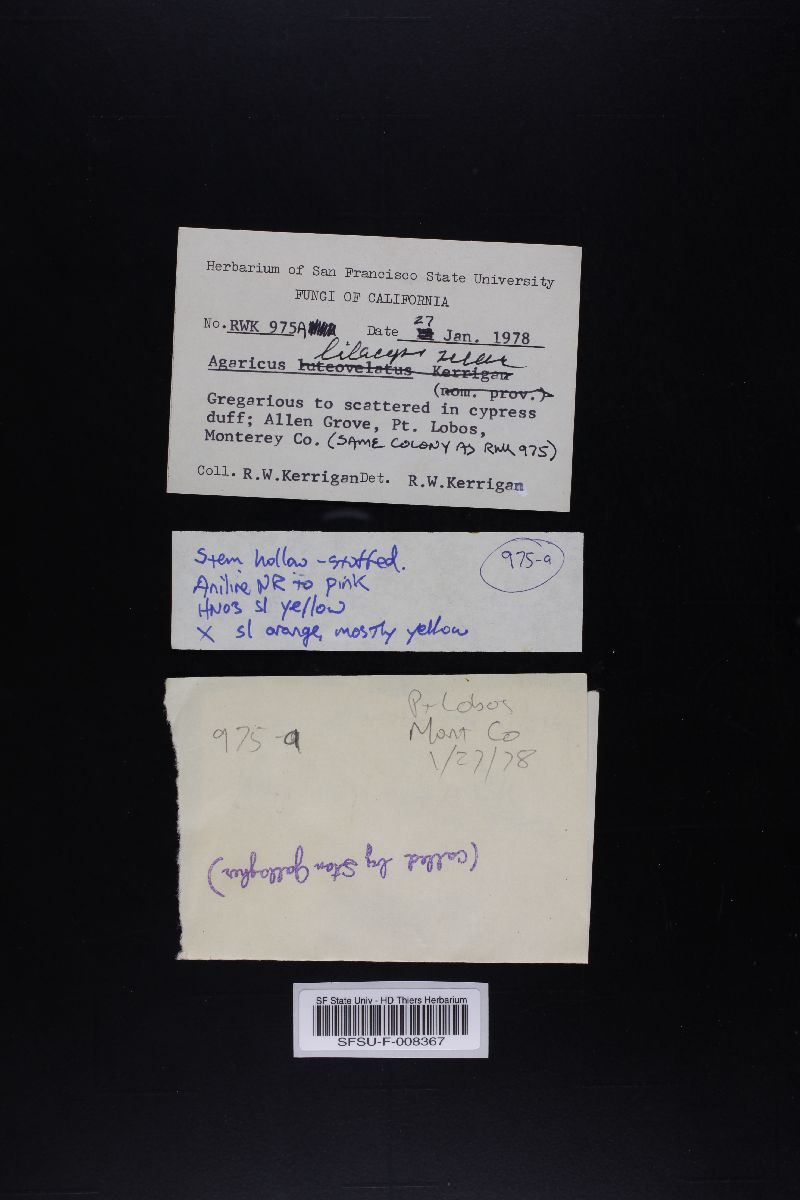 Herbarium of San Francisco State University
FUNGI OF CALIFORNIA
No. RWK 975A Date 27 Jan. 1978
lilaceps Zeller
Agaricus luteovelatus Kerrigan
(nom. prov.)
Gregarious to scattered in cypress
duff; Allen Grove, Pt. Lobos,
Monterey Co. (SAME COLONY AS RWK 975)
Coll. R.W.Kerrigan Det. R.W.Kerrigan
Stem hollow - stuffed. 975-a
Aniline NR to pink
HNO3 sl yellow
X sl orange, mostly yellow
975-a
Pt Lobos
Mont Co
1/27/78
(called by Stan Gallagher)
SF State Univ - HD Thiers Herbarium
SFSU-F-008367